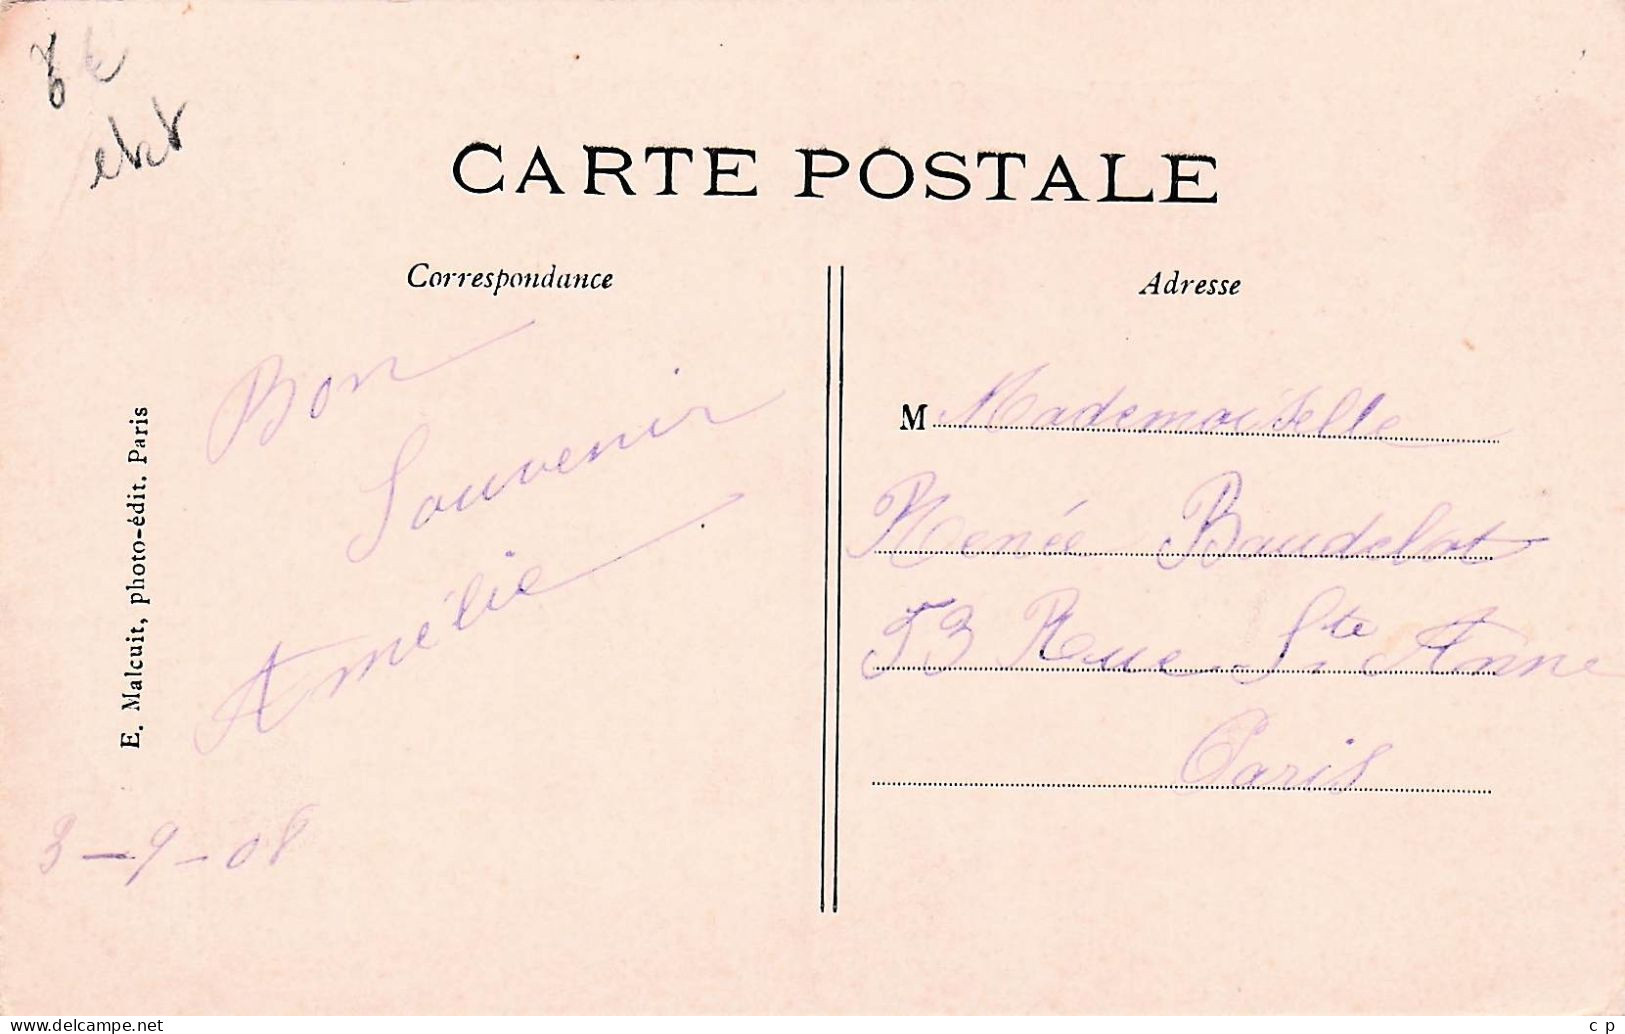 CARTE POSTALE
Correspondance
Bon
Souvenir
Amélie
3-9-08
E. Malcuit, photo-édit. Paris
Adresse
M Mademoiselle
Renée Baudelot
53 Rue Ste Anne
Paris
delcampe.net
c p